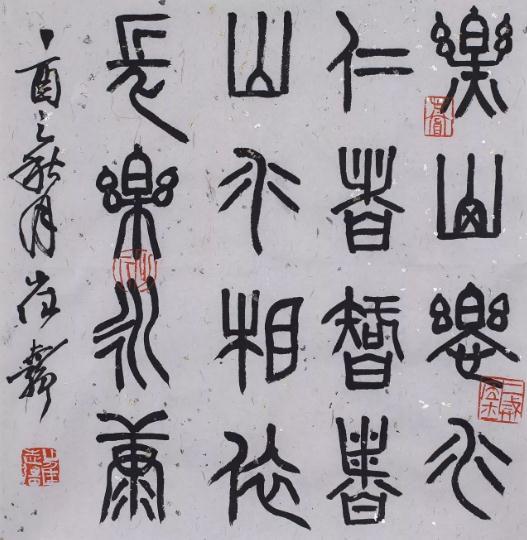 樂山樂水
仁者智者
山水相依
長樂永康
酉之秋月